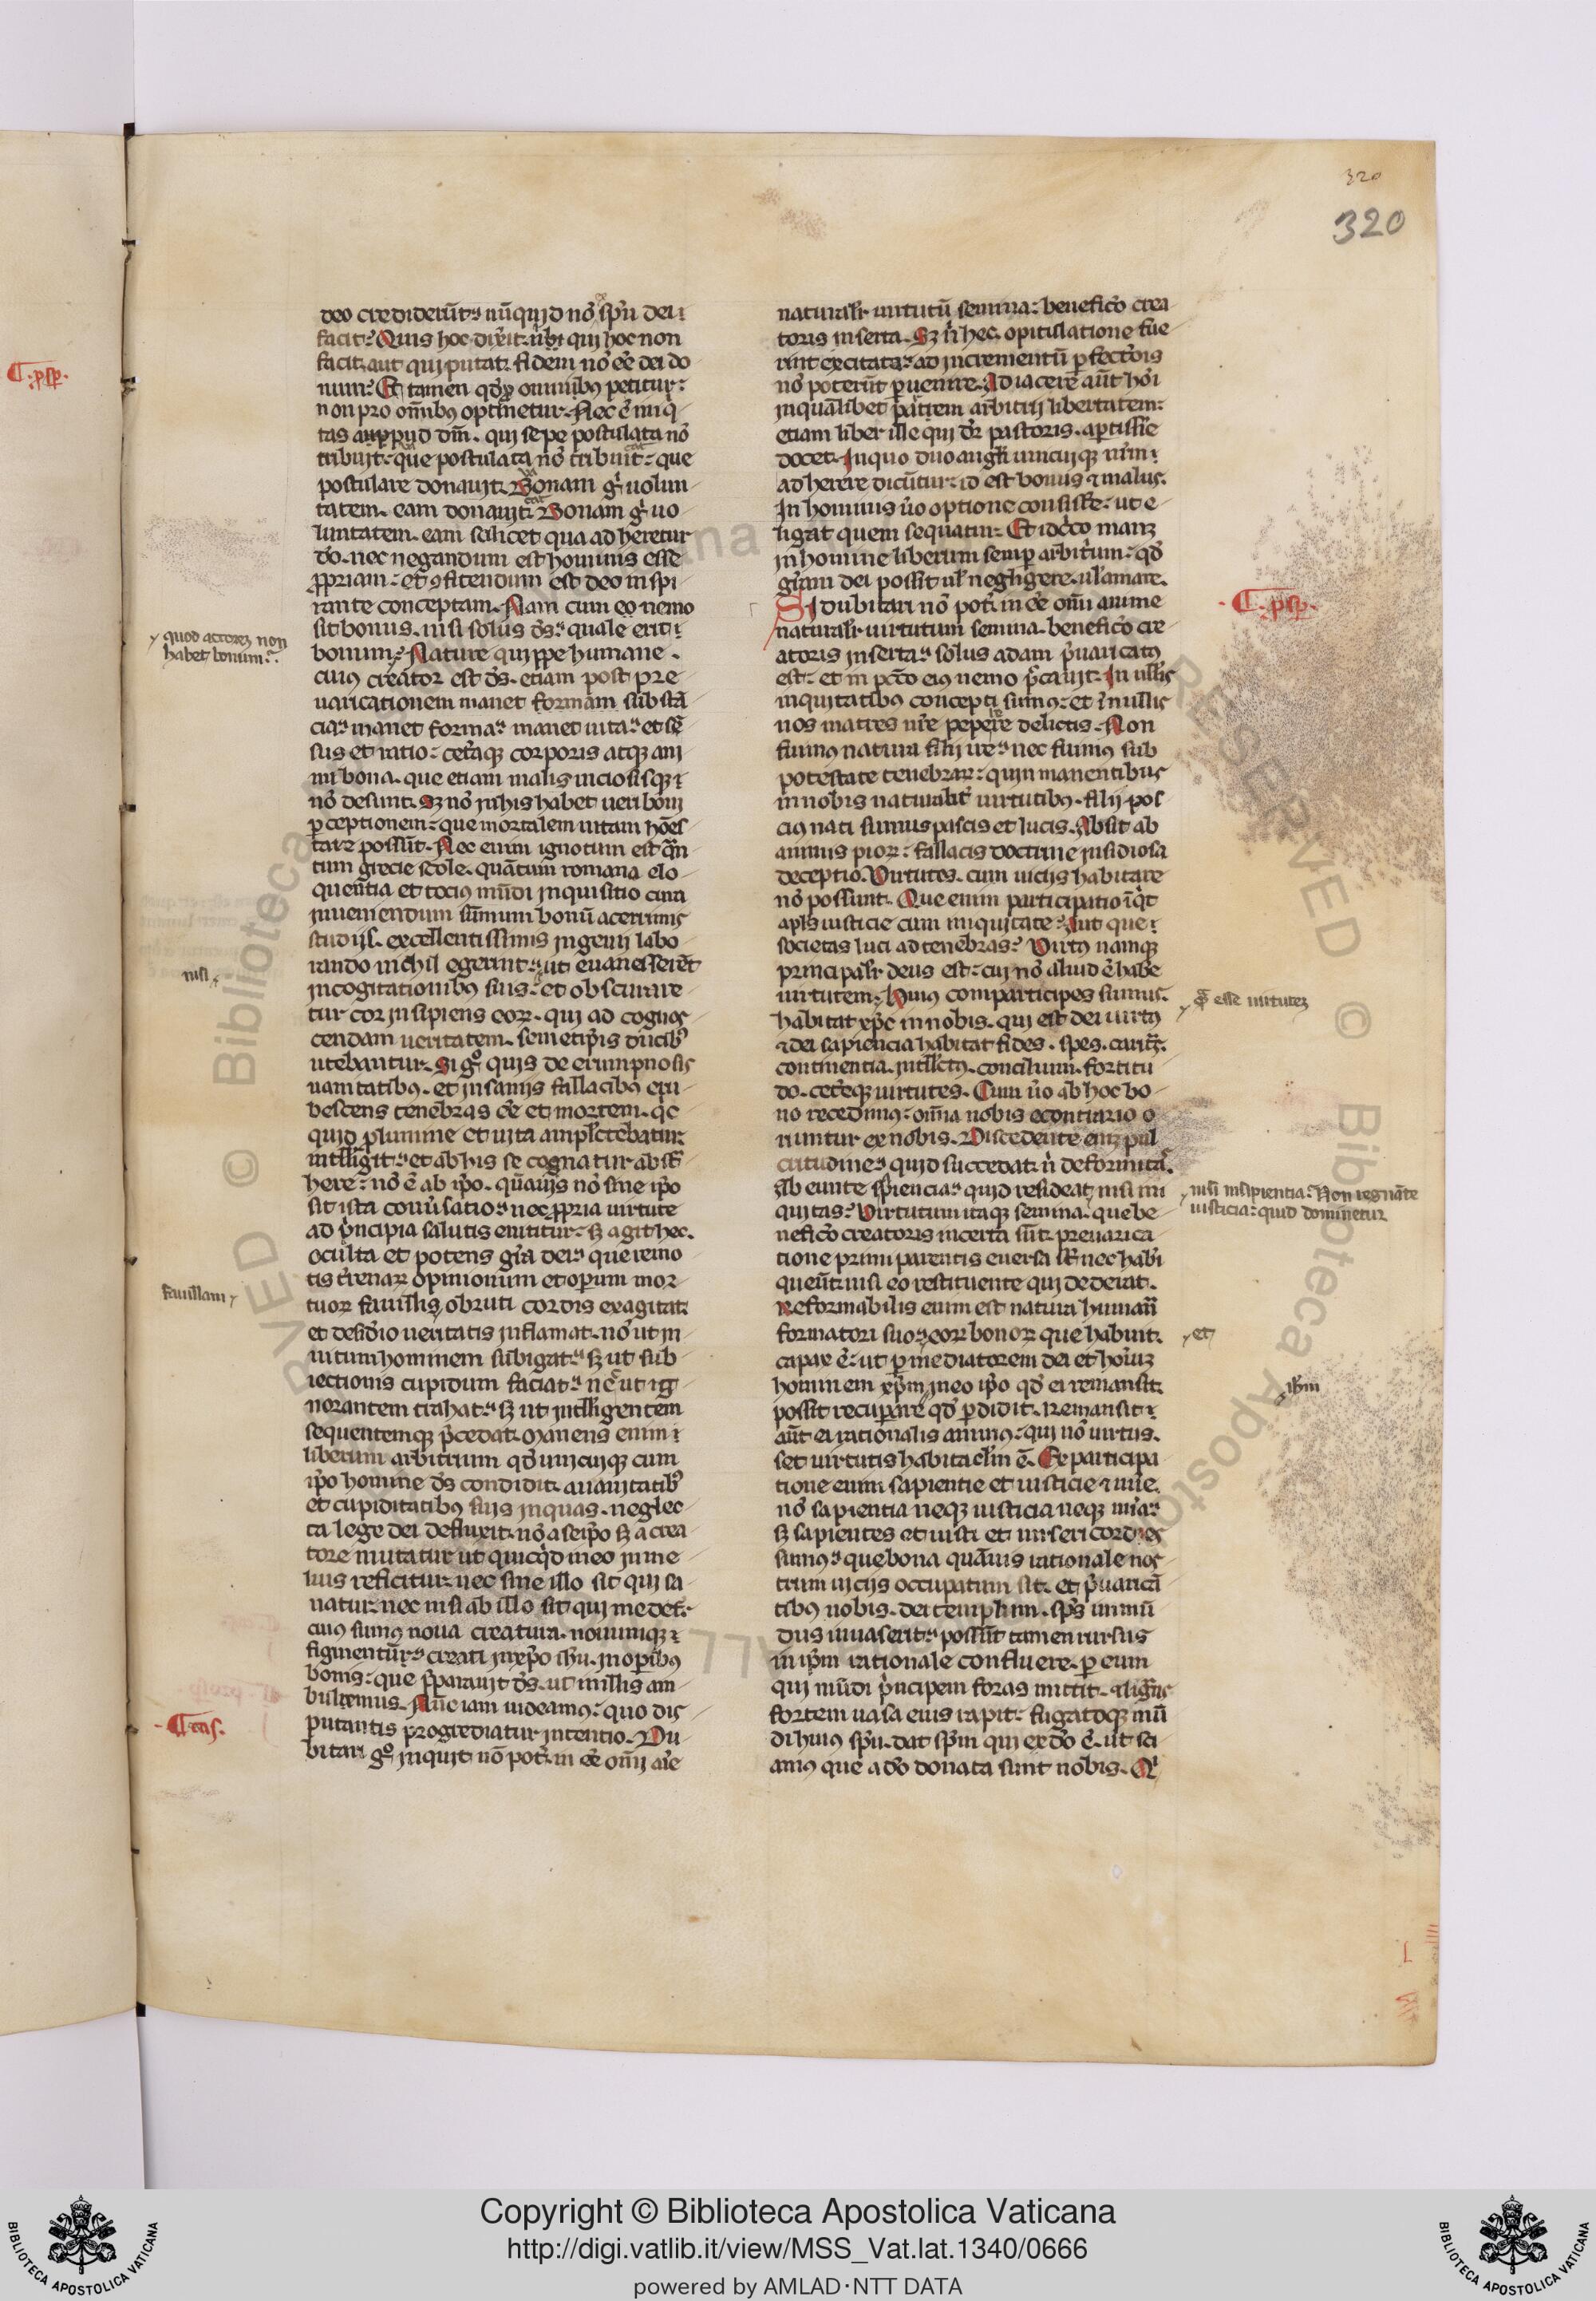 320
320
deo crediderūt nūquid nō spū dei
facit? Quis hoc dixerit nisi qui hoc non
facit aut qui putat fidem nō eē dei do
num? Et tamen qđ pro omnibus petitur
non pro omībus optinetur. Nec ē iniq
tas apud dm̄. qui sepe postulata nō
tribuit que postulata nō tribuit que
postulare donauit. Bonam g̊ uolun
tatem. eam donauit. Bonam g̊ uo
luntatem. eam scilicet qua adheretur
do. nec negandum est hominis esse
ppriam et ꝯfitendum est deo inspi
rante conceptam. Nam cum eo nemo
sit bonus. nisi solus ds. quale erit
bonum? Nature quippe humane.
cuius creator est ds. etiam post pre
uaricationem manet formam substā
cia manet forma manet uita et sē
sus et ratio ceteraque corporis atque ani
mi bona. que etiam malis uiciosisque
nō desunt. Sz nō in his habet ueri boni
perceptionem que mortalem uitam hōes
tare possūt. Nec enim ignotum est qn̄
tum grecie scole. quātum romana elo
quentia et tocius mūdi inquisitio circa
inueniendum sūmum bonū acerrimis
studiis. excellentissimis ingenii labo
rando nichil egerint ut euanescerēt
in cogitationibus suis et obscurare
tur cor insipiens eorum. qui ad cognos
cendam ueritatem. semetipis ducibus
utebantur. Si g̊ quis de erumpnosis
uanitatibus. et insaniis fallacibus eru
bescens tenebras eē et mortem. qc
quid plurime et uita amplectebatur
intelligit et ab his se cognatur abst
here nō ē ab ipo. quāuis nō sine ipo
sit ista conuersatio nec ppria uirtute
ad principia salutis enititur sz agit hec
oculta et potens gra dei que remo
tis terrenarum opinionum et operum mor
tuorum fauillis obruti cordis exagitat
et desiderio ueritatis inflamat. nō ut in
uitum hominem subigat sz ut sub
iectionis cupidum faciat nec ut ig
norantem trahat sz ut intelligentem
sequentemque precedat. Manens enim
liberum arbitrium qđ unicuique cum
ipo homine ds condidit. a uanitatibus
et cupiditatibus suis in quas. neglec
ta lege dei defluxit. nō a seipo sz a crea
tore mutatur ut quicqd in eo in me
lius reficitur nec sine illo sit qui sa
natur nec nisi ab illo sit qui medetur
cuius sumus noua creatura. nouumque
figmentum creati in xpo ihu. in operibus
bonis que preparauit ds. ut in illis am
bulemus. Nunc iam uideamus quo dis
putantis progrediatur intentio. Du
bitari g̊ inquit nō potest inesse omī aīe
naturaliter uirtutū semina beneficio crea
toris inserta. Sz nisi hec opitulatione fue
rint excitata ad incrementū perfectōis
nō poterūt peruenire. Adiacere aut hoī
in quālibet partem arbitrii libertatem
etiam liber ille qui dr pastoris. apertissie
docet. In quo duo angeli unicuique nrm
adherere dicūtur id est bonus et malus.
In hominis uero optione consistere ut e
ligat quem sequatur. Et idcirco manet
in homine liberum semper arbitrium qđ
gram dei possit uel negligere uel amare.
Si dubitari nō potest inesse omī anime
naturaliter uirtutum semina beneficio cre
atoris inserta solus adam preuaricatus
est et in peccato eius nemo peccauit. In nullis
iniquitatibus concepti sumus et in nullis
nos matres nre pepere delictis. Non
fuimus natura filii ire nec fuimus sub
potestate tenebrarum quin manentibus
in nobis naturalibus uirtutibus. filii pos
cius nati sumus pacis et lucis. Absit ab
animis piorum fallacis doctrine insidiosa
deceptio. Virtutes. cum uiciis habitare
nō possunt. Que enim participatio īqt
apls iusticie cum iniquitate? Aut que
societas luci ad tenebras? Virtus namque
principaliter deus est cui nō aliud ē habere
uirtutem. Huius comparticipes sumus.
habitat xpc in nobis. qui est dei uirtus
et dei sapiencia habitat fides. spes. caritas.
continentia. intellectus. concilium. fortitu
do. cetereque uirtutes. Cum uero ab hoc bo
no recedimus omnia nobis econtrario o
riuntur ex nobis. Discedente enim pul
critudine quid succedat nisi deformitas.
Abeunte sapiencia quid resideat nisi ini
quitas? Virtutum itaque semina. que be
neficio creatoris incerta sūt preuarica
tione primi parentis euersa sūt nec haberi
queūt nisi eo restituente qui dederat.
Reformabilis enim est natura humana
formatori suo eorum bonorum que habuit.
capax ē ut per mediatorem dei et hominum
hominem xpm in eo ipo qđ ei remansit
possit recuperare qđ perdidit. Remansit
aut ei rationalis animus qui nō uirtus.
set uirtutis habitaculum ē. Ex participa
tione enim sapientie et iusticie et mie
nō sapientia neque iusticia neque mia
sz sapientes et iusti et misericordes
sumus que bona quāuis rationale nos
trum uiciis occupatum sit. et preuaricā
tibus nobis. dei templum. sps immū
dus inuaserit possūt tamen rursus
in ipm rationale confluere. per eum
qui mūdi principem foras mittit. alligans
fortem uasa eius rapit fugatoque mū
di huius spu. dat spm qui ex do ē. ut sci
amus que a do donata sunt nobis. Q
quod actorez non
habet bonum.
nisi
fauillam
C. cas.
C. psp.
C. psp.
esse uirtutez
nisi insipientia. Non regnāte
iusticia quid dominetur
et
ihm
Copyright © Biblioteca Apostolica Vaticana
http://digi.vatlib.it/view/MSS_Vat.lat.1340/0666
powered by AMLAD·NTT DATA
BIBLIOTECA APOSTOLICA VATICANA
BIBLIOTECA APOSTOLICA VATICANA